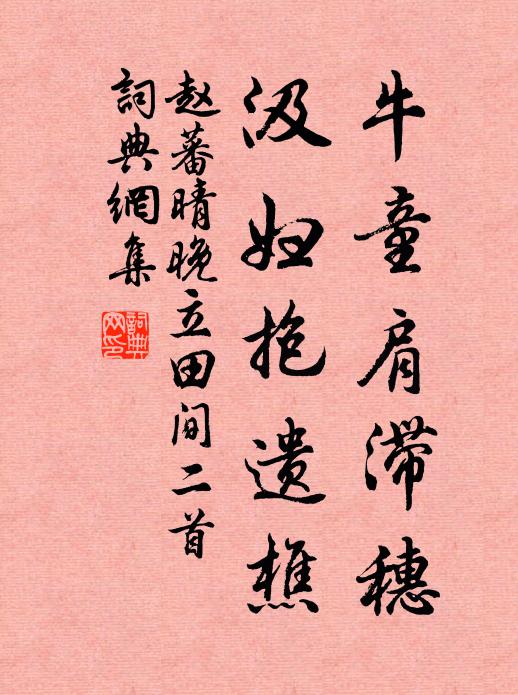 牛童肩滞穗
汲妇抱遗樵
赵蕃晴晚立田间二首
詞典網集
詞典网印